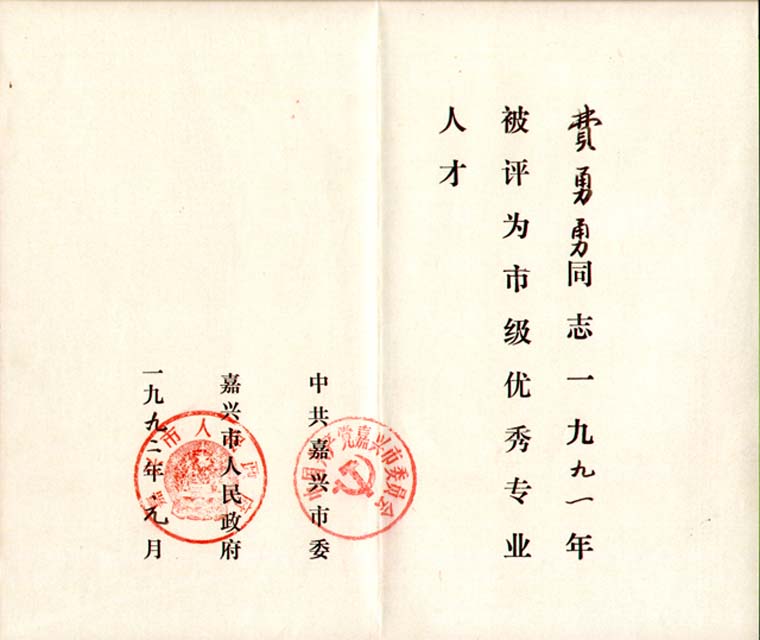 費勇勇同志一九九一年
被评为市级优秀专业
人才
中共嘉兴市委
嘉兴市人民政府
一九九二年元月
中国共产党嘉兴市委员会
嘉兴市人民政府